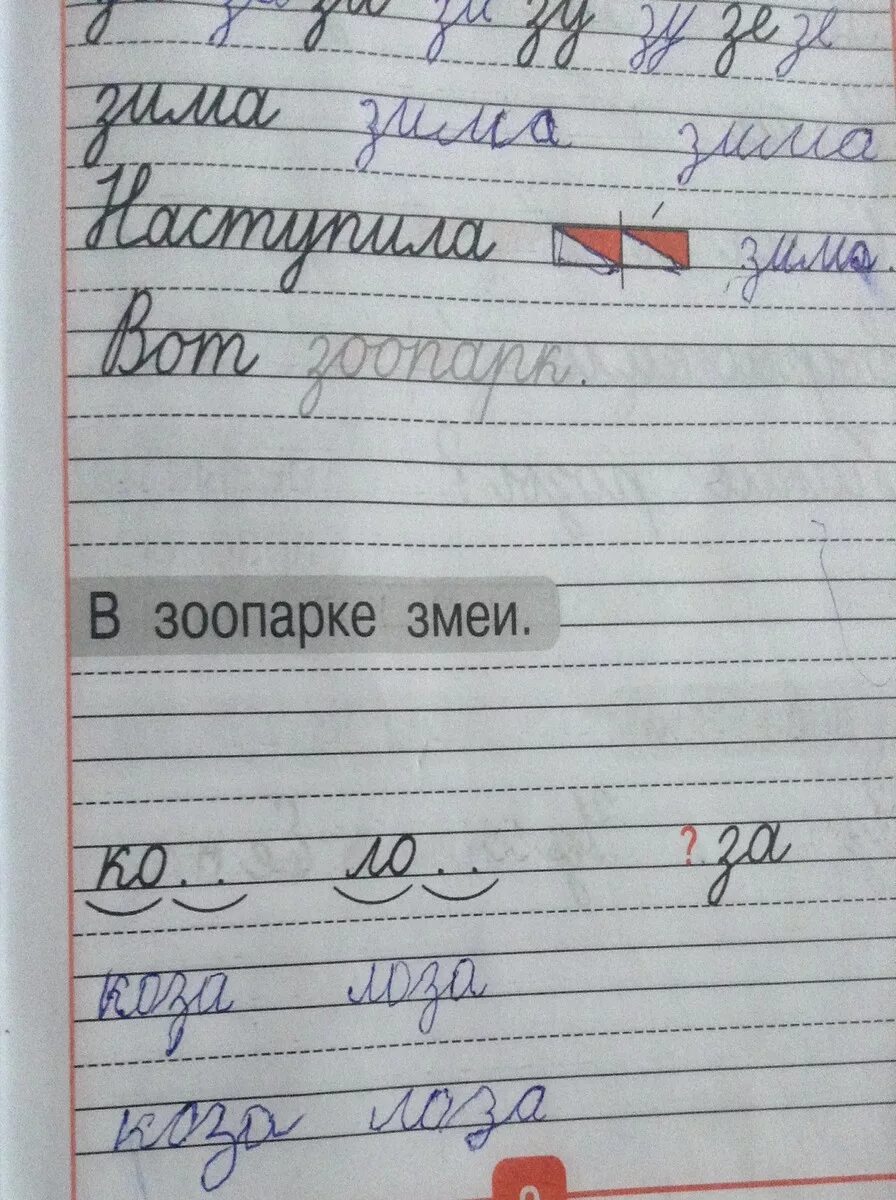 за зи зу зу зе зе
зима зима зима
Наступила зима.
Вот зоопарк.
В зоопарке змеи.
ко.. ло.. ? за
коза лоза
коза лоза